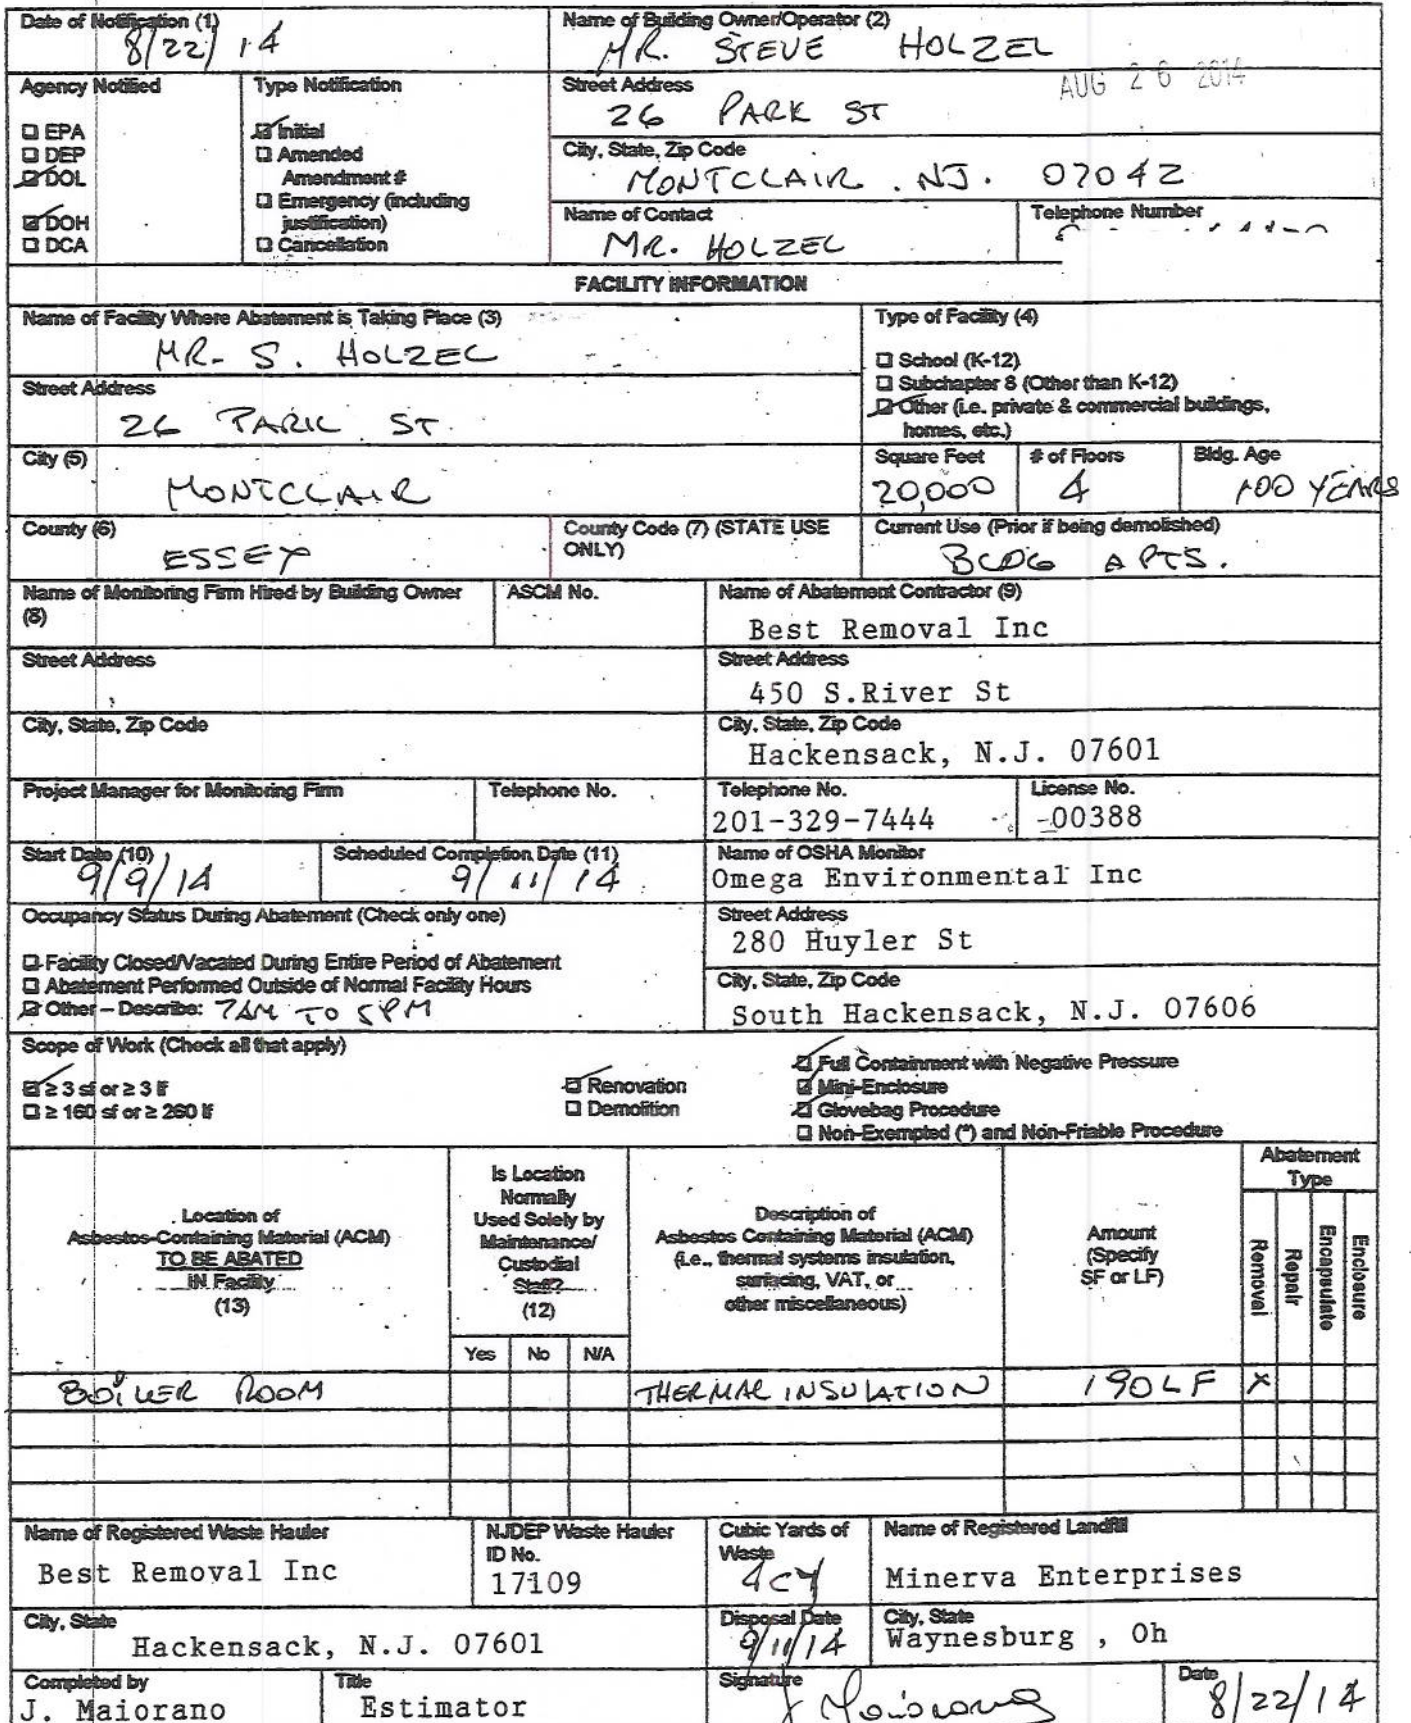 Date of Notification (1)
8/22/14
Name of Building Owner/Operator (2)
MR. STEVE HOLZEL
Agency Notified
EPA
DEP
DOL
DOH
DCA
Type Notification
Initial
Amended
Amendment #
Emergency (including
justification)
Cancellation
Street Address
26 PARK ST
AUG 26 2014
City, State, Zip Code
MONTCLAIR. NJ. 07042
Name of Contact
MR. HOLZEL
Telephone Number
FACILITY INFORMATION
Name of Facility Where Abatement is Taking Place (3)
MR. S. HOLZEL
Type of Facility (4)
School (K-12)
Subchapter 8 (Other than K-12)
Other (i.e. private & commercial buildings,
homes, etc.)
Street Address
26 PARK ST.
City (5)
MONTCLAIR
Square Feet
20,000
# of Floors
4
Bldg. Age
100 YEARS
County (6)
ESSEX
County Code (7) (STATE USE
ONLY)
Current Use (Prior if being demolished)
BLDG APTS.
Name of Monitoring Firm Hired by Building Owner
(8)
ASCM No.
Name of Abatement Contractor (9)
Best Removal Inc
Street Address
Street Address
450 S.River St
City, State, Zip Code
City, State, Zip Code
Hackensack, N.J. 07601
Project Manager for Monitoring Firm
Telephone No.
Telephone No.
201-329-7444
License No.
-00388
Start Date (10)
9/9/14
Scheduled Completion Date (11)
9/11/14
Name of OSHA Monitor
Omega Environmental Inc
Occupancy Status During Abatement (Check only one)
Facility Closed/Vacated During Entire Period of Abatement
Abatement Performed Outside of Normal Facility Hours
Other – Describe: 7AM TO 5PM
Street Address
280 Huyler St
City, State, Zip Code
South Hackensack, N.J. 07606
Scope of Work (Check all that apply)
≥ 3 sf or ≥ 3 lf
≥ 160 sf or ≥ 260 lf
Renovation
Demolition
Full Containment with Negative Pressure
Mini-Enclosure
Glovebag Procedure
Non-Exempted (*) and Non-Friable Procedure
Location of
Asbestos-Containing Material (ACM)
TO BE ABATED
IN Facility
(13)
Is Location
Normally
Used Solely by
Maintenance/
Custodial
Staff?
(12)
Yes No N/A
Description of
Asbestos Containing Material (ACM)
(i.e., thermal systems insulation,
surfacing, VAT, or
other miscellaneous)
Amount
(Specify
SF or LF)
Abatement
Type
Removal
Repair
Encapsulate
Enclosure
BOILER ROOM THERMAL INSULATION 190 LF X
Name of Registered Waste Hauler
Best Removal Inc
NJDEP Waste Hauler
ID No.
17109
Cubic Yards of
Waste
4CY
Name of Registered Landfill
Minerva Enterprises
City, State
Hackensack, N.J. 07601
Disposal Date
9/11/14
City, State
Waynesburg , Oh
Completed by
J. Maiorano
Title
Estimator
Signature
J Maiorano
Date
8/22/14